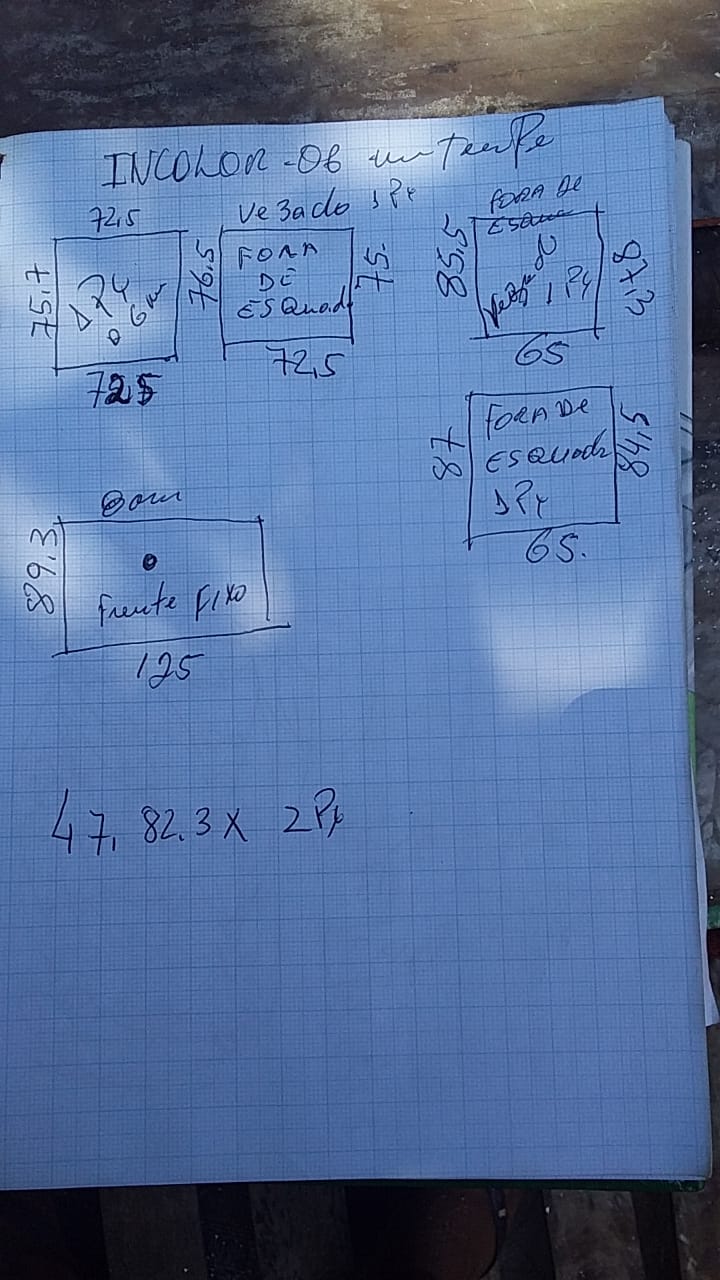 INCOLOR - 06 mm TemPe
72,5
75,7
1 Pç
06 m
72,5
Vezado 1 Pç
76,5
FORA
DE
ESQuadr
75.
72,5
FORA DE
ESQua
85,5
1 Pç
87,3
65
87
FORA DE
ESQuadr
1 Pç
84,5
65.
89.3
Frente Fixo
125
47, 82.3 X 2 Pç